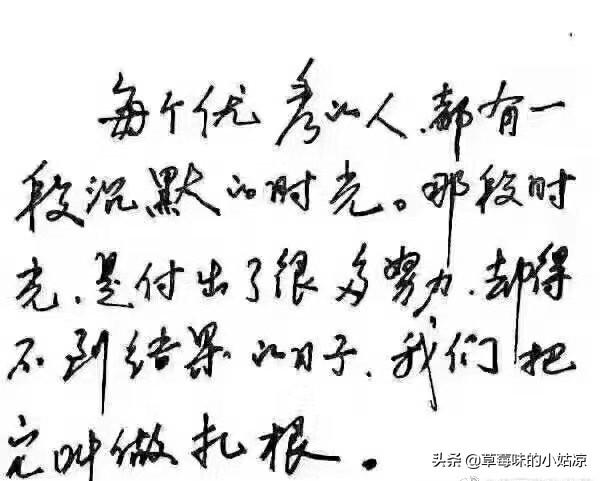 每个优秀的人,都有一
段沉默的时光。那段时
光,是付出了很多努力,却得
不到结果的日子,我们把
它叫做扎根。
头条 @草莓味的小姑凉